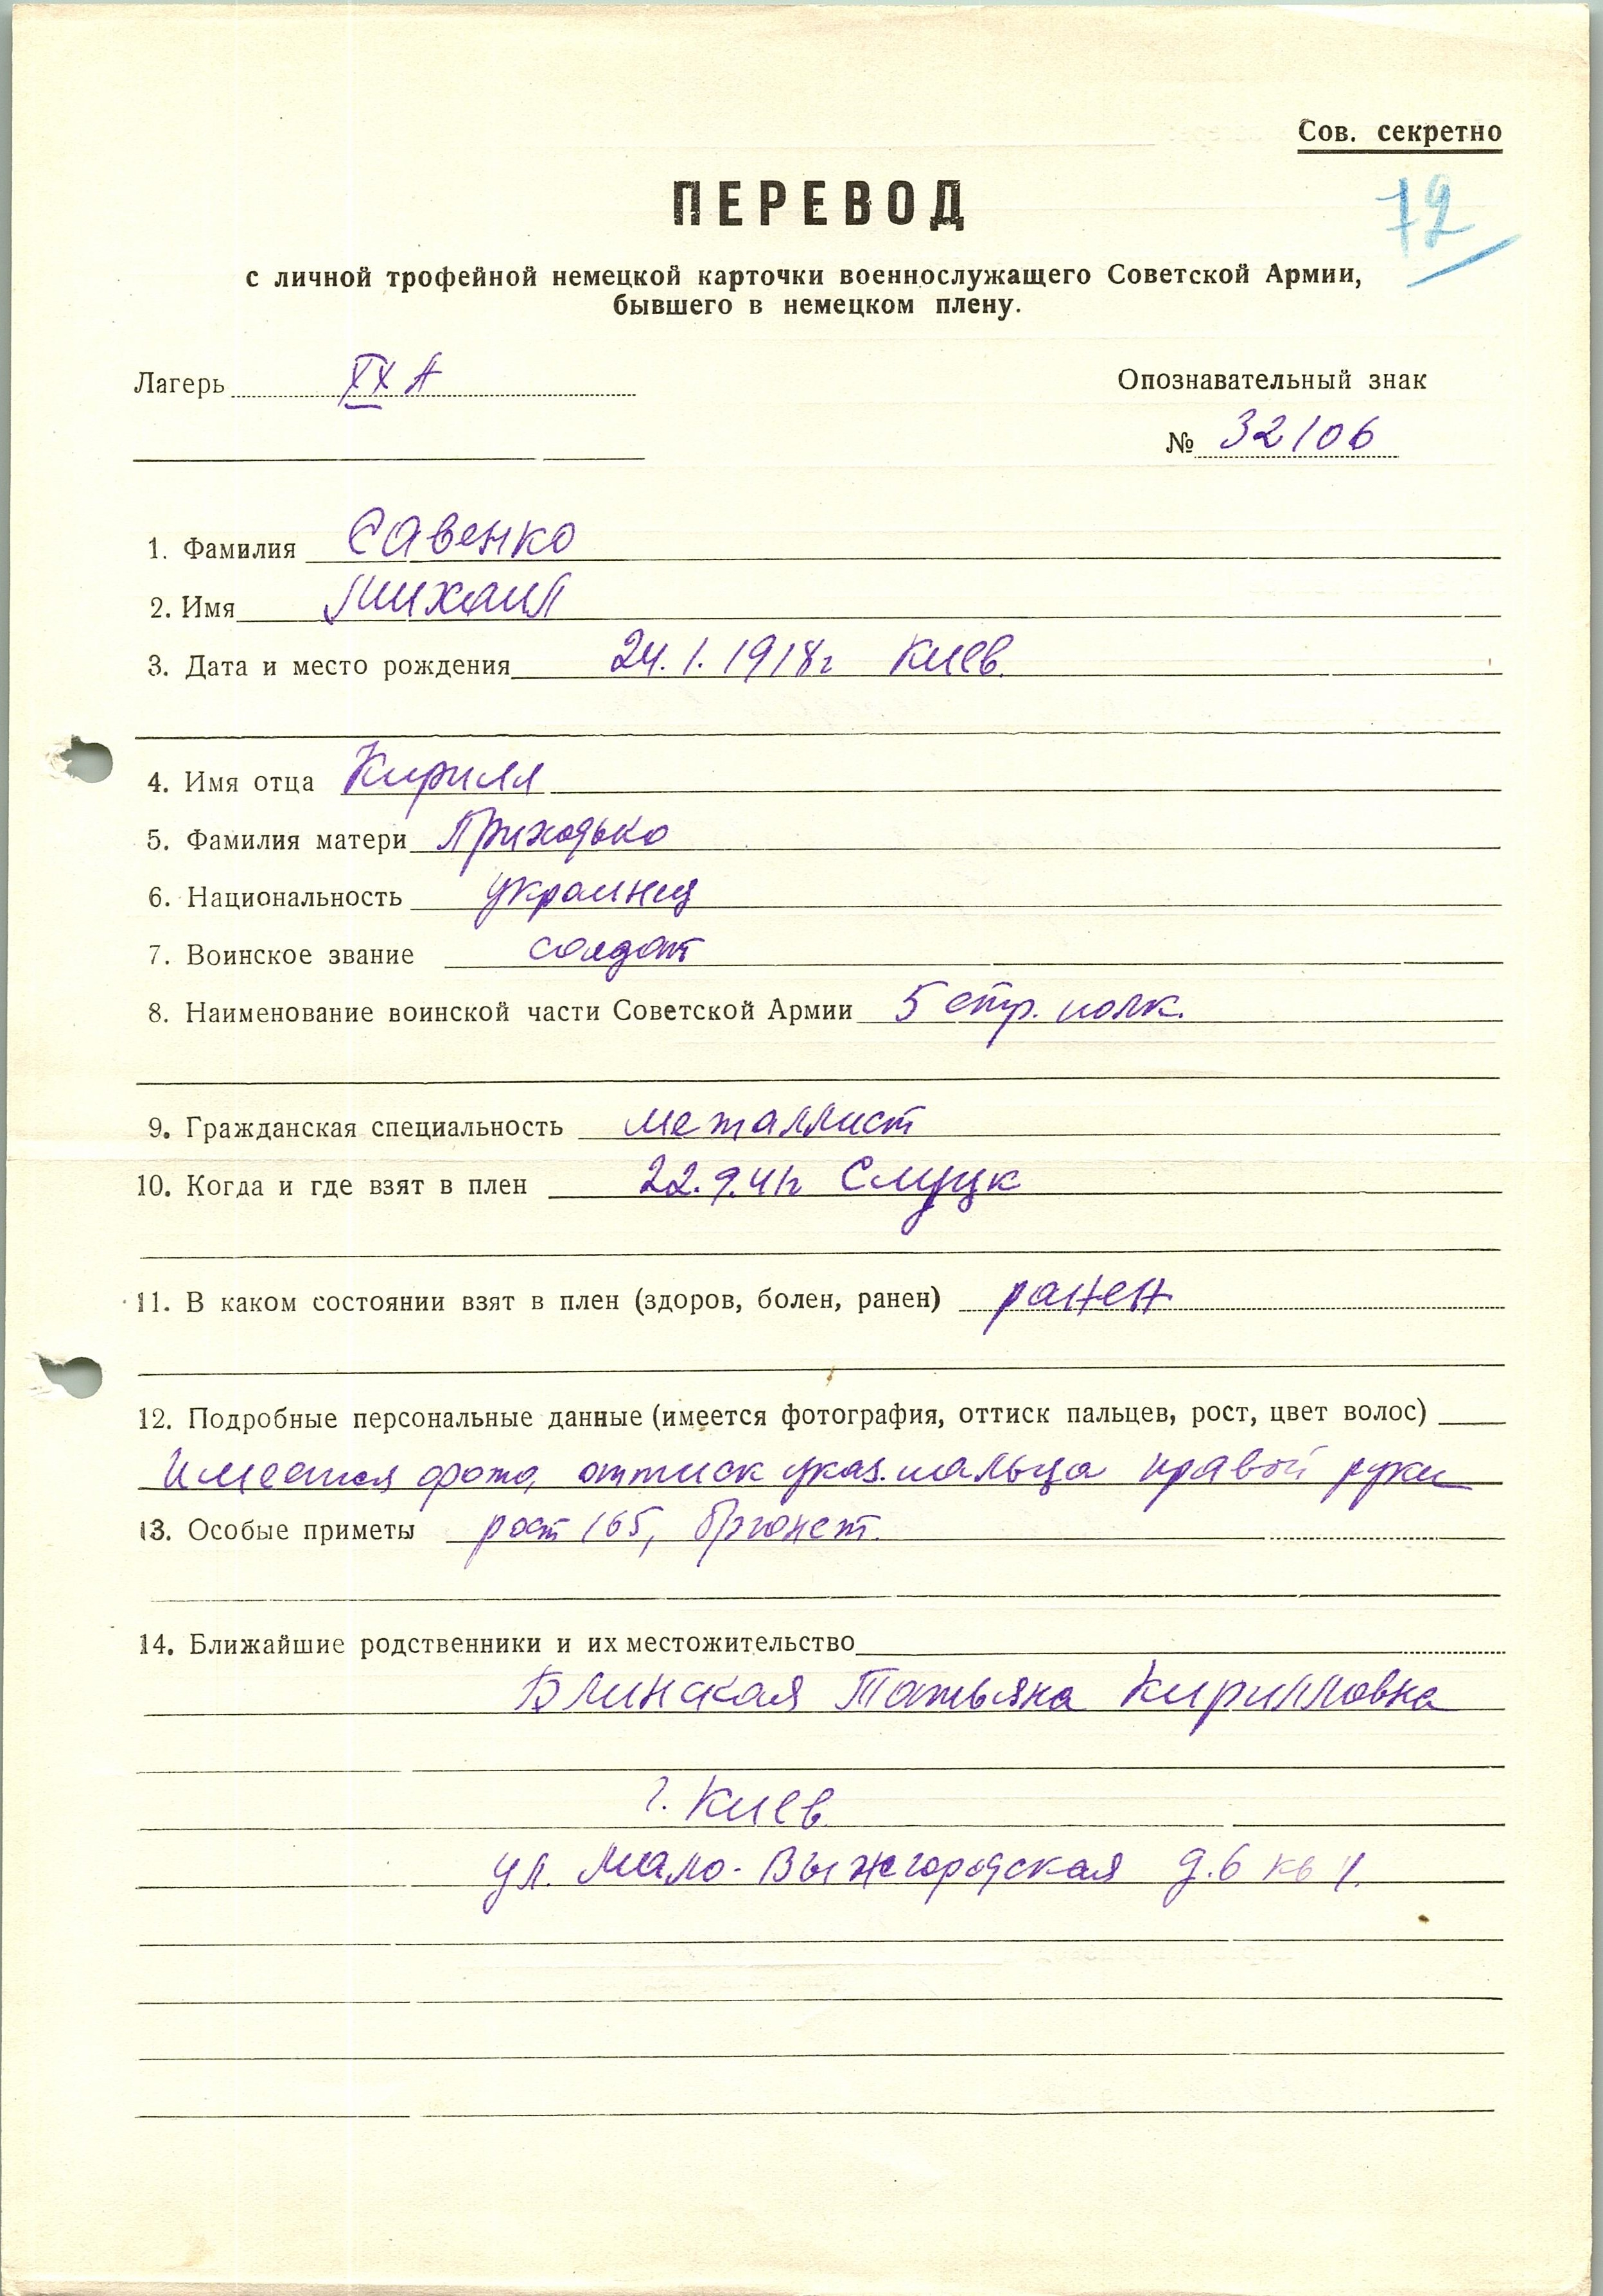 Сов. секретно
72
ПЕРЕВОД
с личной трофейной немецкой карточки военнослужащего Советской Армии,
бывшего в немецком плену.
Лагерь XXA
Опознавательный знак
№ 32106
1. Фамилия Савенко
2. Имя Михаил
3. Дата и место рождения 24.1.1918г Киев.
4. Имя отца Кирилл
5. Фамилия матери Приходько
6. Национальность украинец
7. Воинское звание солдат
8. Наименование воинской части Советской Армии 5 стр. полк.
9. Гражданская специальность металлист
10. Когда и где взят в плен 22.9.41г Слуцк
11. В каком состоянии взят в плен (здоров, болен, ранен) ранен
12. Подробные персональные данные (имеется фотография, оттиск пальцев, рост, цвет волос)
Имеется фото, оттиск указ. пальца правой руки
13. Особые приметы рост 165, брюнет.
14. Ближайшие родственники и их местожительство
Блинская Татьяна Кирилловна
г. Киев
ул. Мало-Выжгородская д.6 кв